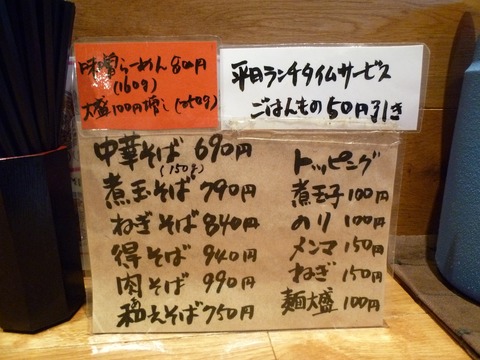 味噌らーめん 800円
(160g)
大盛100円増し(250g)
平日ランチタイムサービス
ごはんもの50円引き
中華そば 690円
(150g)
煮玉そば 790円
ねぎそば 840円
得そば 940円
肉そば 990円
和えそば 750円
トッピング
煮玉子 100円
のり 100円
メンマ 150円
ねぎ 150円
麺大盛 100円